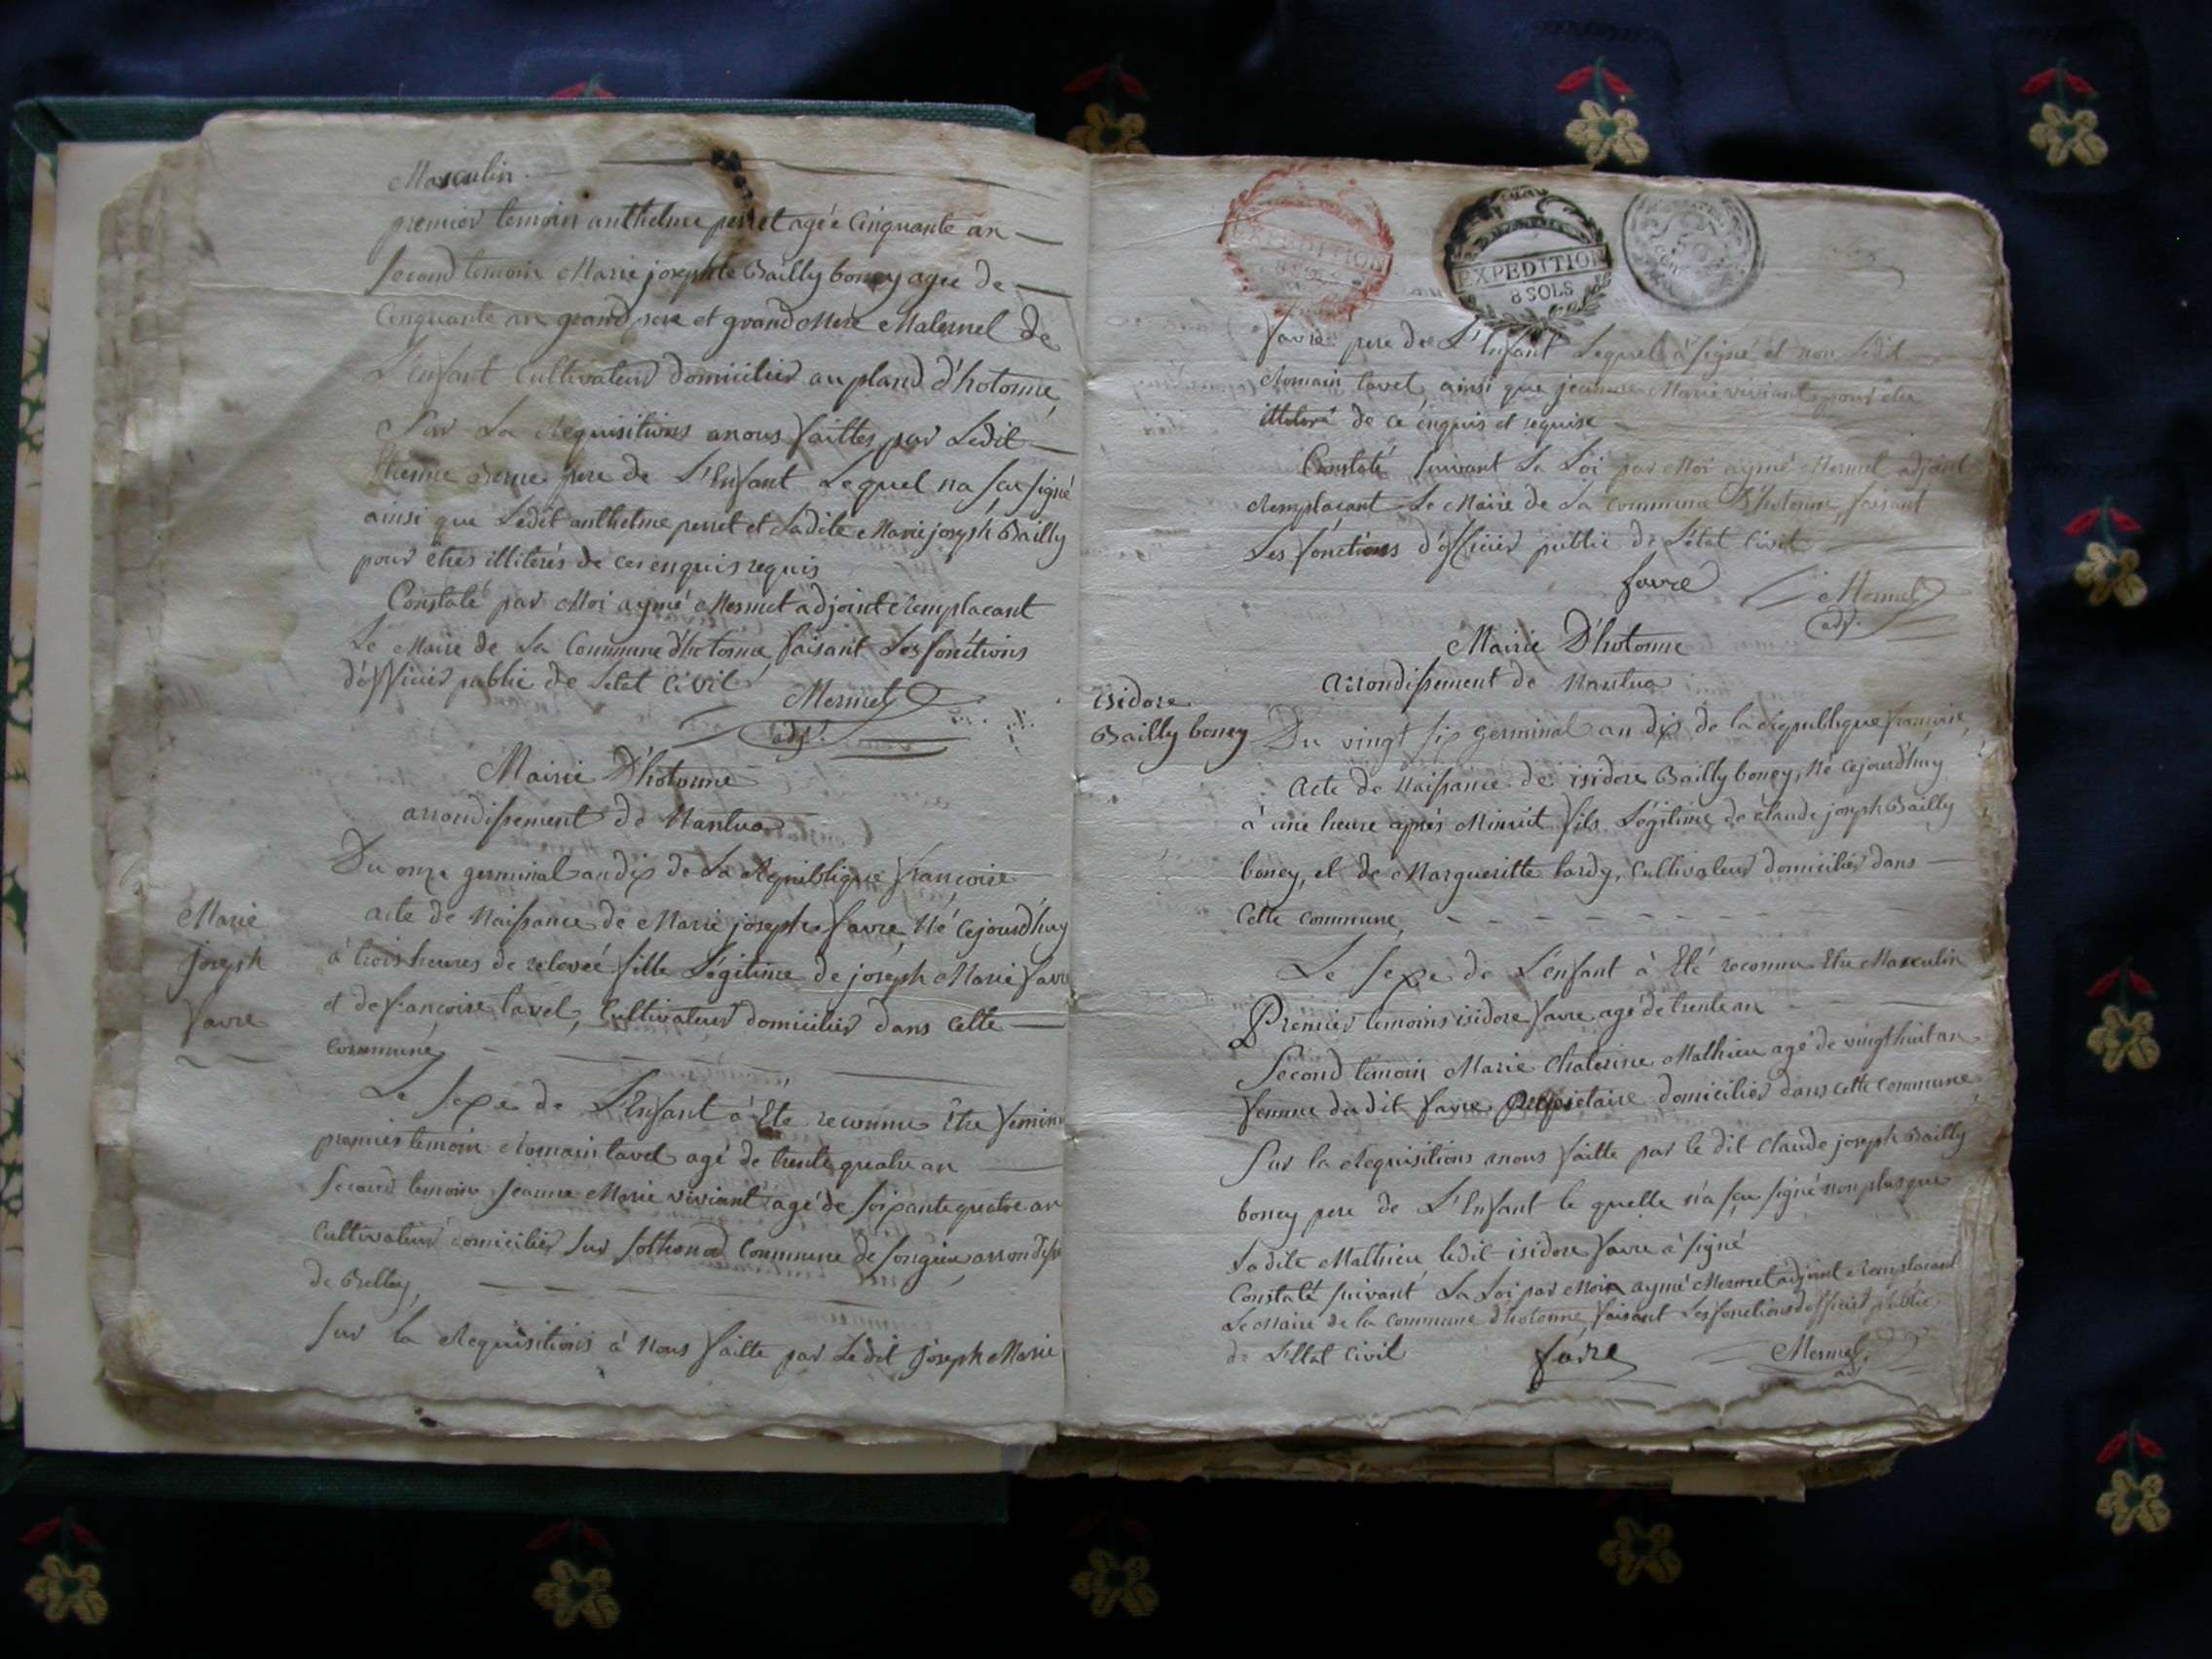 Masculin
premier temoin anthelme perret agée Cinquante an
second temoin Marie josephte Bailly boney agee de
Cinquante an grand pere et grand Mere Maternel de
L'Enfant Cultivateurs domiciliés au pland d'hotonne,
Sur La Requisitions anous faittes par Ledit
Etienne Berne pere de L'Enfant Lequel na scu signé
ainsi que Ledit anthelme perret et Ladite Marie joseph Bailly
pour êtres illiterés de ce enquis requis
Constaté par Moi aymé Mermet adjoint Remplacant
Le Maire de La Commune d'hotonne, faisant Les fonctions
d'officier public de Letat Civil
Mermet
adj.
Mairie D'hotonne
arrondissement de Nantua
Du onze germinal an dix de La Republique françoise
Marie
joseph
favre
acte de Naissance de Marie josephe favre, Né Cejourd'huy
à trois heures de relevée fille Légitime de joseph Marie favre
et de françoise tavel, Cultivateurs domiciliés dans Cette
commune,
Le sexe de L'Enfant à Eté reconnu Etre feminin
premier temoin Romain tavel agé de trente quatre an
second temoin jeanne Marie viviant agé de soixante quatre an
Cultivateurs domiciliés sur sothonod Commune de songieu arrondiss
de Belley,
sur la Requisitions à Nous faitte par Ledit joseph Marie
EXPEDITION
8 SOLS
EXPEDITION
8 SOLS
favre pere de L'Enfant Lequel à signé et non Ledit
Romain tavel, ainsi que jeanne Marie viviant pour être
illiteré de ce enquis et requise
Constaté suivant La Loi par Moi aymé Mermet adjoint
Remplacant Le Maire de La commune D'hotonne, faisant
Les fonctions d'officier public de L'état Civil
favre
Mermet
adj.
Mairie D'hotonne
arrondissement de Nantua
isidore
Bailly boney
Du vingt six germinal an dix de la Republique françoise,
Acte de Naissance de isidore Bailly boney, Né cejourd'huy
à une heure aprés Minuit fils Légitime de claude joseph Bailly
boney, et de Margueritte tardy, Cultivateurs domiciliés dans
Cette commune,
Le sexe de L'enfant à Eté reconnu Etre Masculin
Premier temoins isidore favre agé de trente an
Second temoin Marie Chaterine Mathieu agé de vingt huit an
femme dudit favre proprietaire domiciliés dans cette commune,
sur la Requisitions anous faitte par le dit Claude joseph Bailly
boney pere de L'Enfant le quelle n'a scu signé non plus que
Ladite Mathieu ledit isidore favre à signé
Constaté suivant La Loi par Moi aymé Mermet adjoint Remplacant
Le Maire de la commune d'hotonne, faisant Les fonctions d'officier public
de L'Etat Civil
favre
Mermet
adj